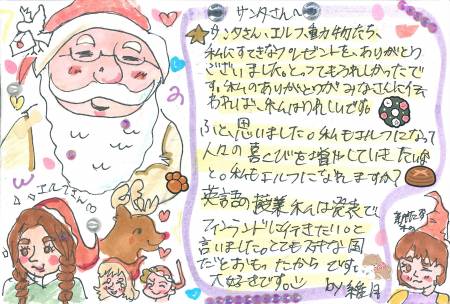 サンタさんへ
サンタさん、エルフ、動物たち、
私にすてきなプレゼントを、ありがとう
ございました。とってもうれしかったで
す。私のありがとうがみなさんに伝
われば、私はうれしいです。
ふと、思いました。私もエルフになって
人々の喜こびを増やしていきたいな
と。私もエルフになれますか?
英語の授業私は発表で
フィンランドに行きたい。と
言いました。とてもステキな国
だとおもったからです。
大好きです。
by
エルフさん